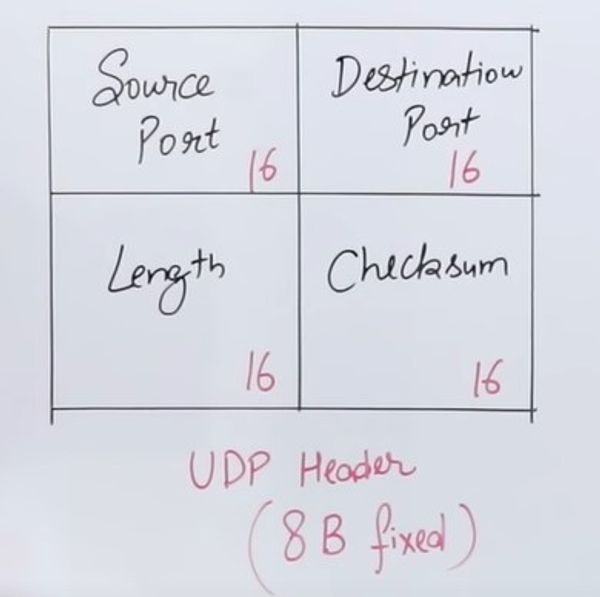 Source
Port
16
Destination
Port
16
Length
16
Checksum
16
UDP Header
(8 B fixed)